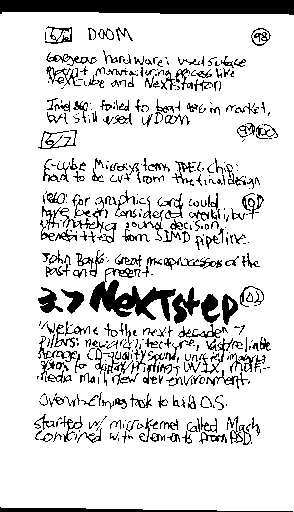 6/6 DOOM 98
Gorgeous hardware: used surface
mount manufacturing process like
NeXTcube and NeXTstation
Intel 860: failed to beat 486 in market,
but still used w/DOOM
6/7
C-Cube Microsystems JPEG chip:
had to be cut from the final design
i860: for graphics card could 101
have been considered overkill, but
ultimately a sound decision,
benefitted from SIMD pipeline.
John Bayko: Great microprocessors of the
Past and present.
3.7 NeXTstep 102
"Welcome to the next decade" 7
Pillars: new architecture, vast/reliable
storage, CD-quality sound, unified imaging
for display/printing, UNIX, multi-
media mail, new dev environment.
Overwhelming task to build O.S.
Started w/ microkernel called Mach
combined with elements from BSD.